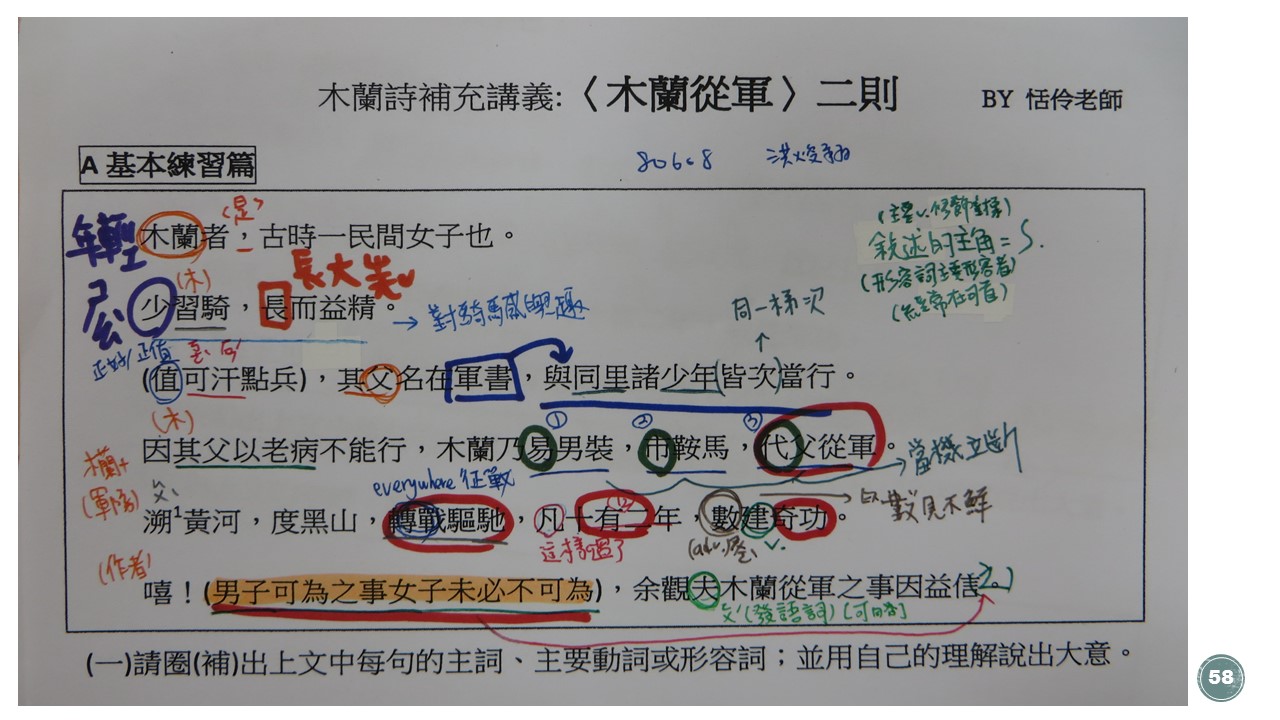 木蘭詩補充講義:〈木蘭從軍〉二則 BY 恬伶老師
80608
A 基本練習篇
(主要v.修飾對樣)
敘述的主角=S.
(形容詞主要形容者)
年輕
<是>
木蘭者,古時一民間女子也。
(木)
長大矣
少習騎,長而益精。
→對騎馬感興趣
同一梯次
正好/正值
(值可汗點兵),其父名在軍書,與同里諸少年(皆次)當行。
(木)
① ② ③
因其父以老病不能行,木蘭乃易男裝,市鞍馬,代父從軍。
當機立斷
everywhere 征戰
溯1黃河,度黑山,轉戰驅馳,凡十有二年,數建奇功。
(12)
數見不鮮
這樣過了
v.
(作者)
嘻!(男子可為之事女子未必不可為),余觀夫木蘭從軍之事因益信之。
(發語詞)[可略]
(一)請圈(補)出上文中每句的主詞、主要動詞或形容詞;並用自己的理解說出大意。
58